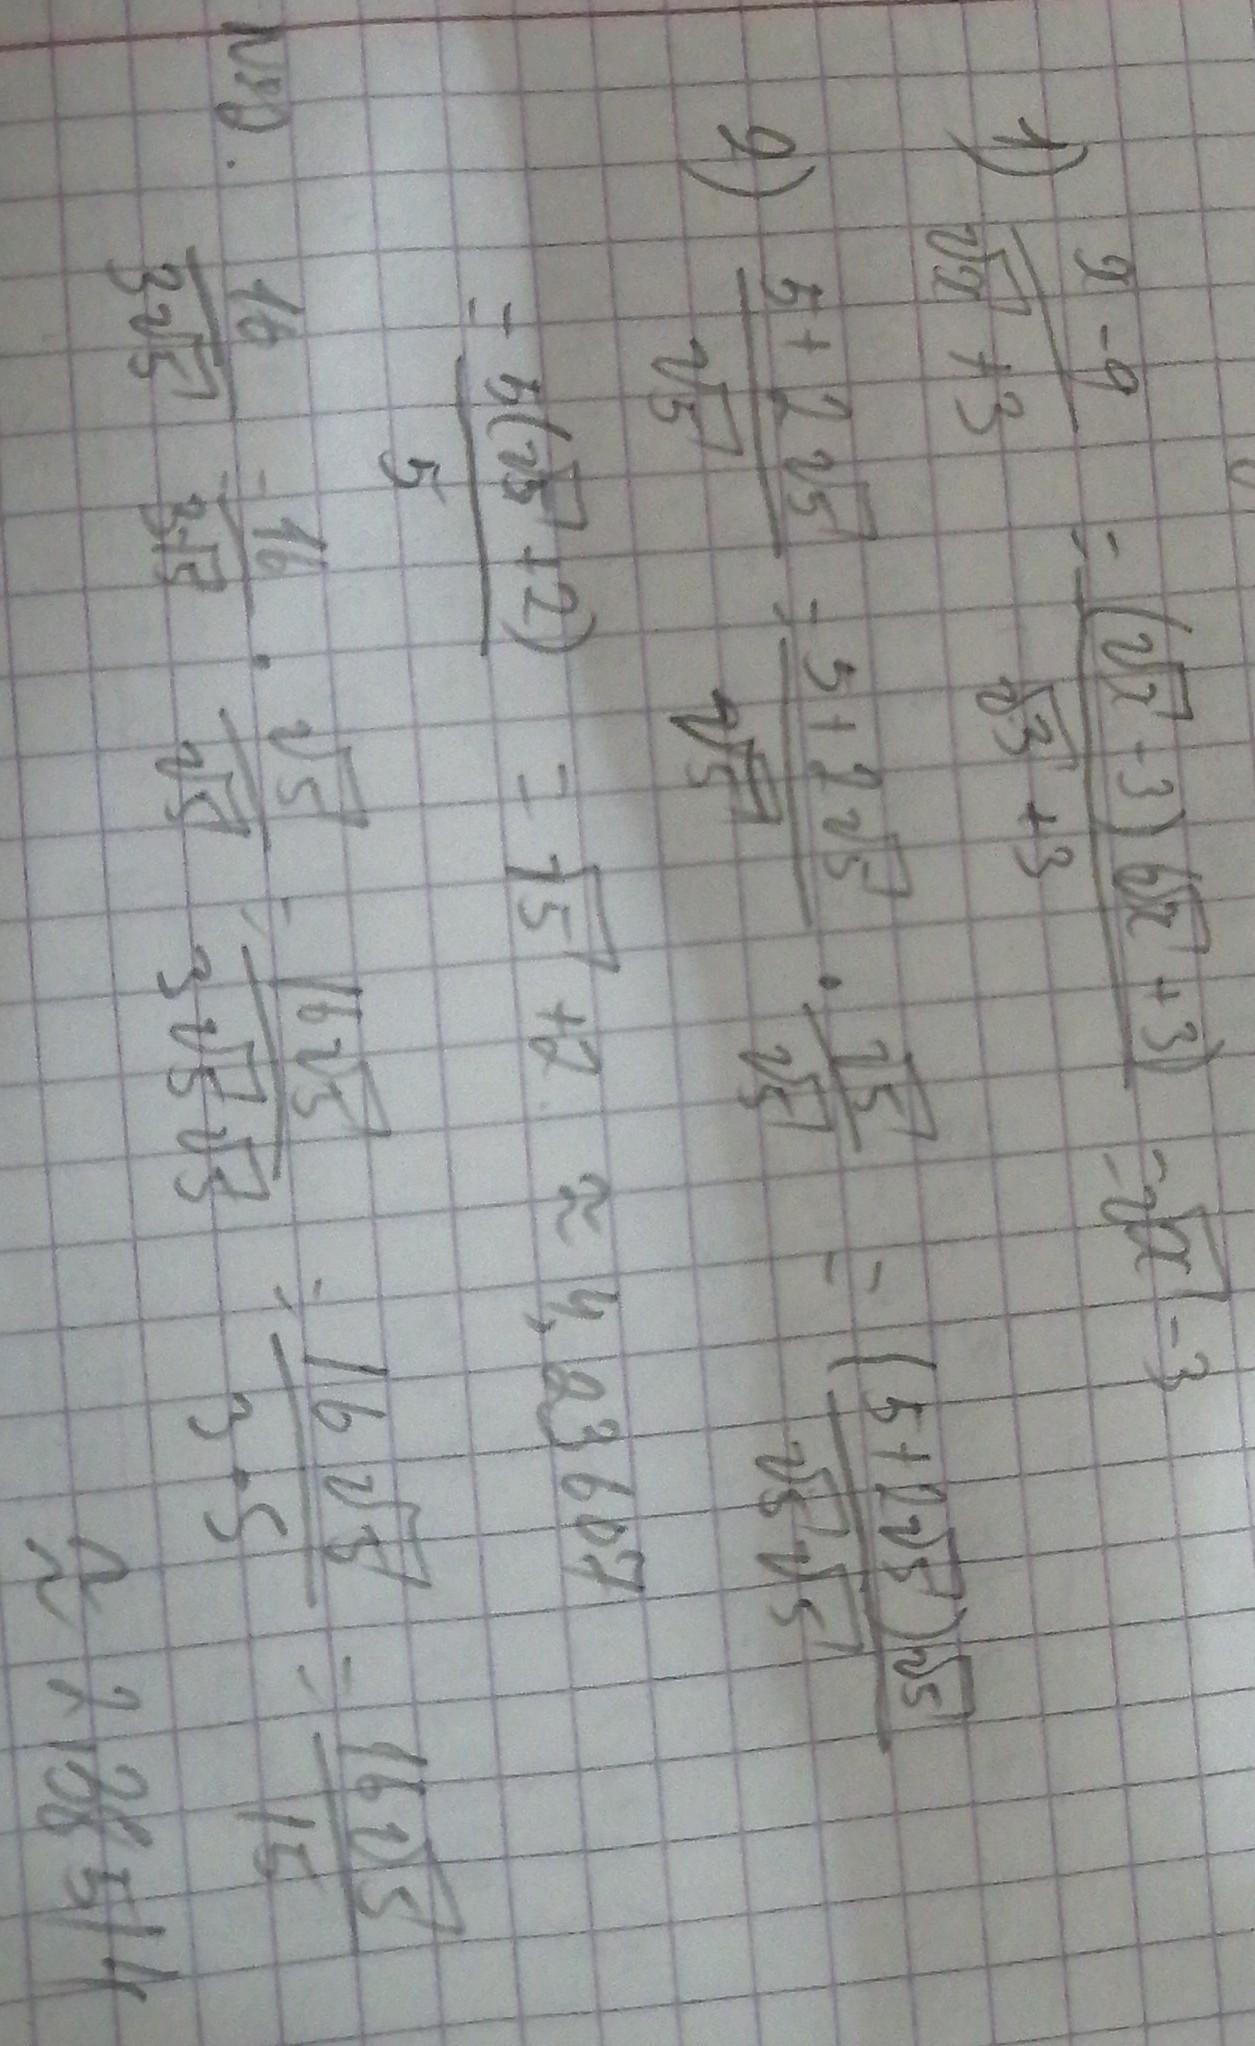 1) (x - 9)/(√x + 3) = ((√x - 3)(√x + 3))/(√3 + 3) = √x - 3
2) (5 + 2√5)/√5 = (5 + 2√5)/√5 · √5/√5 = ((5 + 2√5)√5)/(√5√5)
= 5(√5 + 2)/5 = √5 + 2 ≈ 4,23607
16/(3√5) = 16/(3√5) · √5/√5 = 16√5/(3√5√5) = 16√5/(3 · 5) = 16√5/15
≈ 2,38514